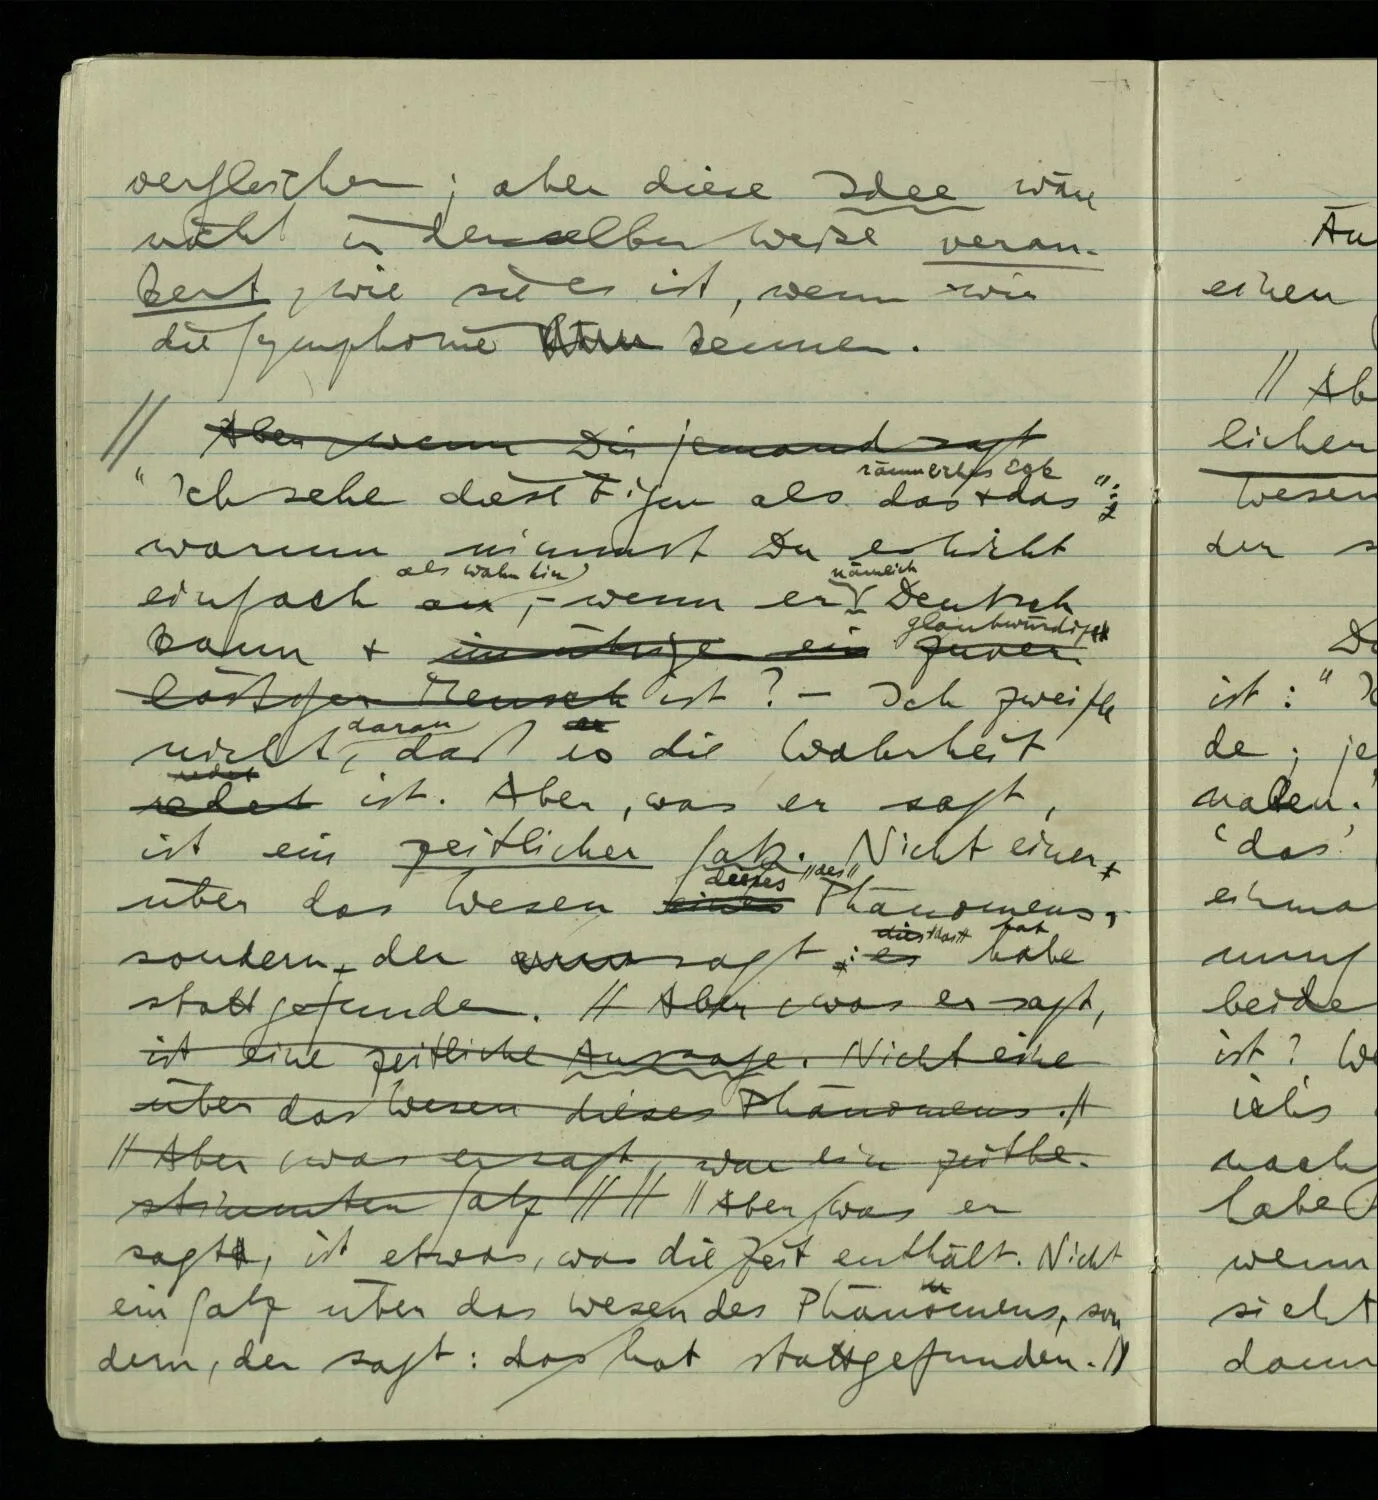 vergleichen; aber diese Idee wäre
nicht in derselben Weise veran-
kert, wie sie es ist, wenn wir
die Symphonie kennen.
// Aber wenn Dir jemand sagt
räumliches
"Ich sehe diese Figur als das + das":
warum nimmst Du es nicht
als wahr hin nämlich
einfach an, – wenn er Deutsch
glaubwürdig
kann + im übrigen ein zuver
lässiger Mensch ist? – Ich zweifle
daran er
nicht, daß es die Wahrheit
redet
redet ist. Aber, was er sagt,
ist ein zeitlicher Satz. Nicht einer
dieses "des"
über das Wesen eines Phänomens,
dies hat
sondern der sagt: es habe
stattgefunden. // Aber, was er sagt,
ist eine zeitliche Aussage. Nicht eine
über das Wesen dieses Phänomens. //
// Aber, was er sagt, war ein zeitbe-
stimmter Satz // // // Aber, was er
sagt, ist etwas, was die Zeit enthält. Nicht
ein Satz über das Wesen des Phänomens, son
dern, der sagt: das hat stattgefunden. //
Au
einen
// Ab
lichen
Wesen
der s
De
ist: "I
de; je
malen."
'das'
einma
nung
beide
ist? We
ich's
nach
habe
wenn
sicht
dann